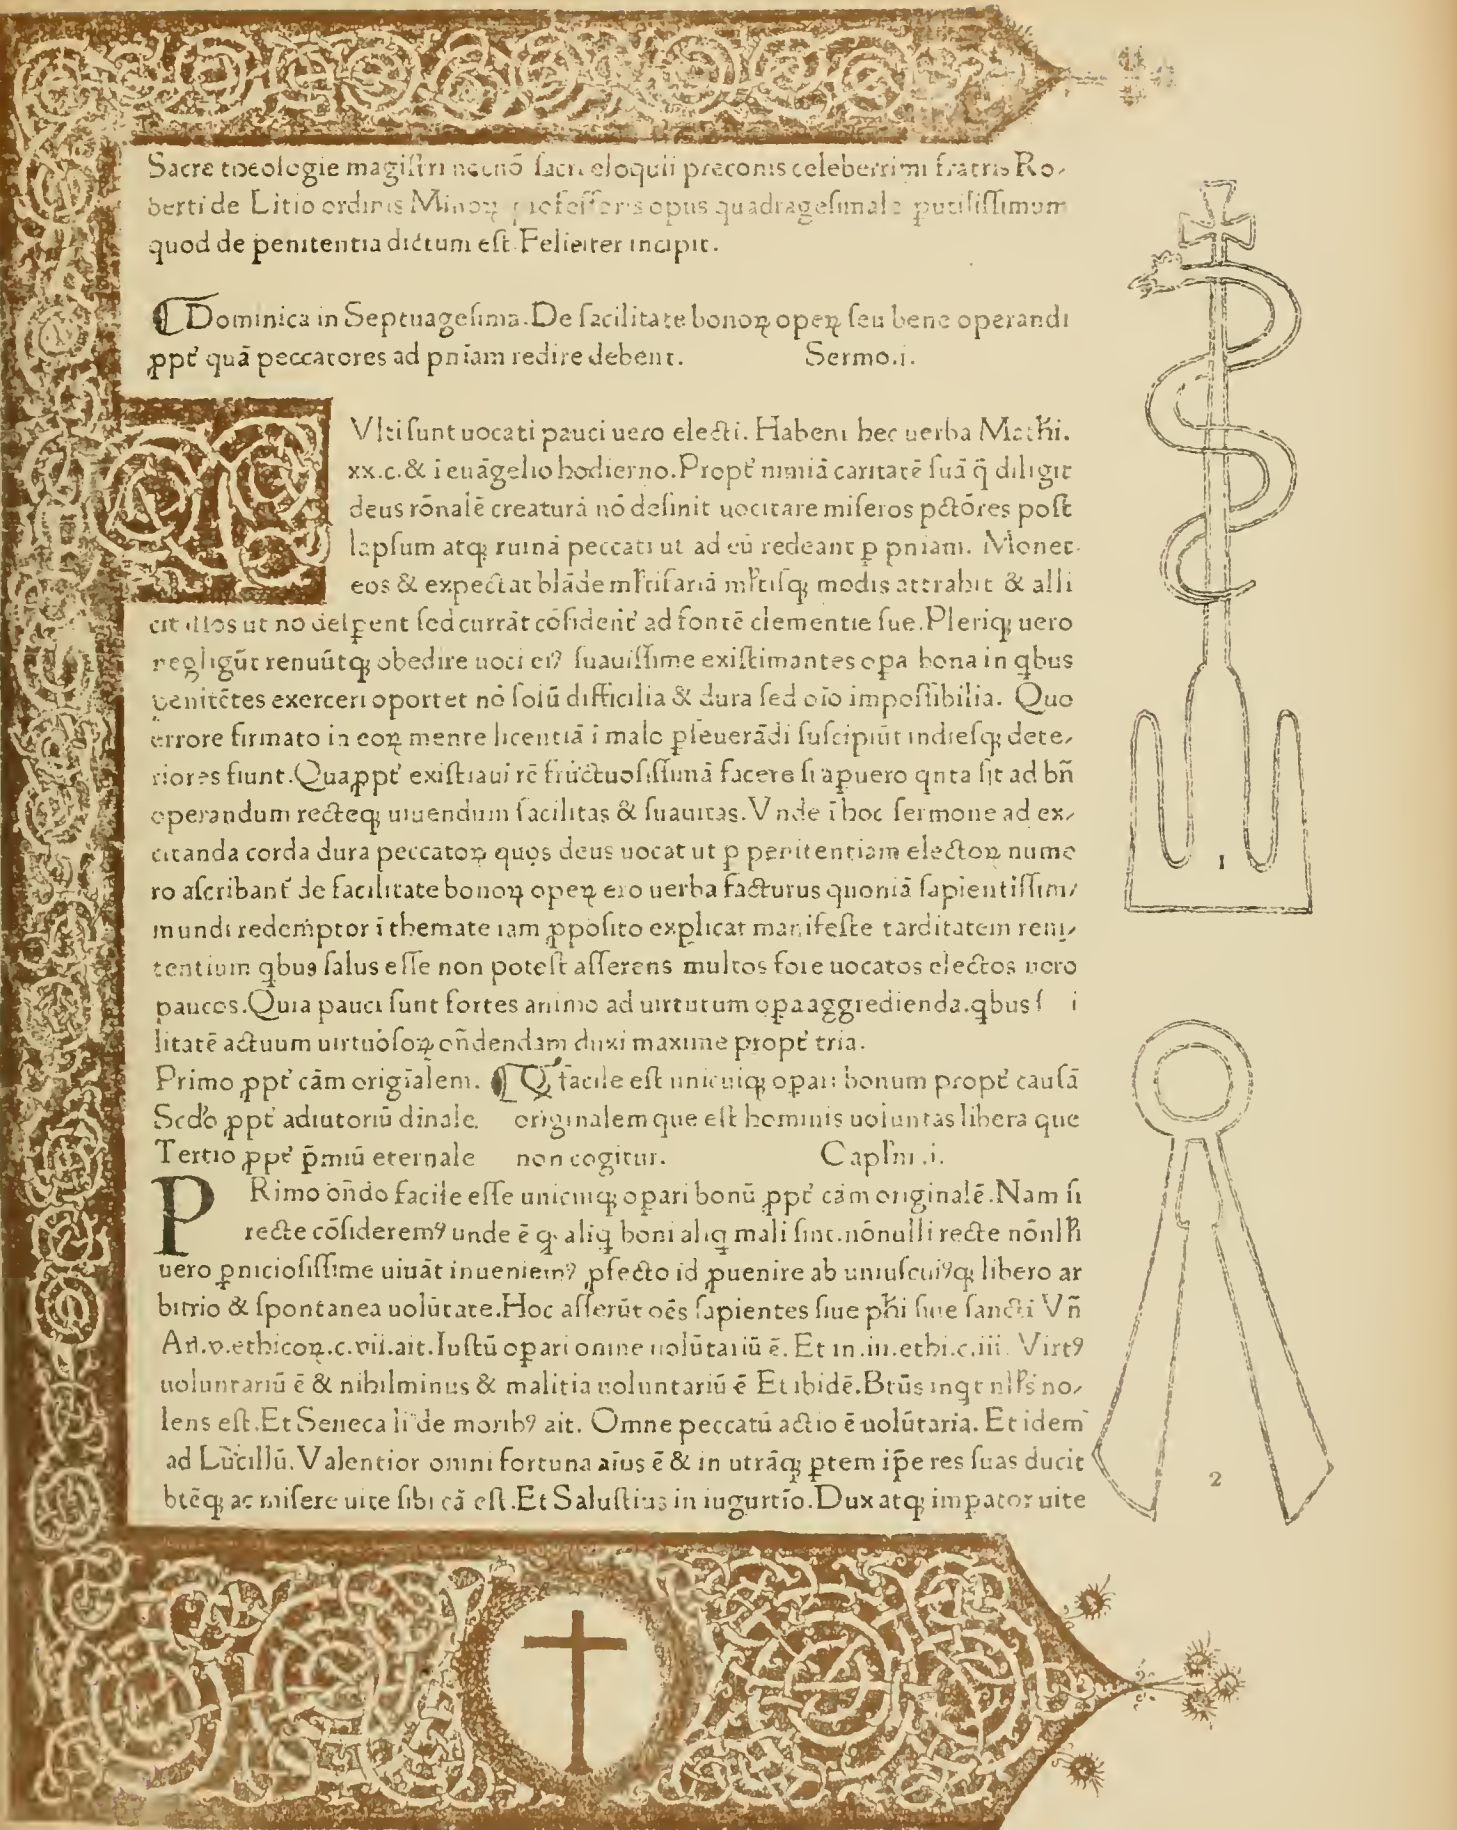 Sacre theologie magiſtri necnō ſacri eloquii preconis celeberrimi fratris Ro⸗
berti de Litio ordinis Minoꝝ profeſſoris opus quadrageſimale putiliſſimum
quod de penitentia dictum eſt. Feliciter incipit.
Dominica in Septuageſima. De facilitate bonoꝝ opeꝝ ſeu bene operandi
ꝓpt̄ quā peccatores ad pn̄iam redire debent. Sermo.i.
Vlti ſunt uocati pauci uero electi. Habent hec uerba Math̄i.
xx.c.& ī euāgelio hodierno. Propt̄ nimiā caritatē ſuā q̄ diligit
deus rōnalē creaturā nō deſinit uocitare miſeros pctōres poſt
lapſum atqꝫ ruinā peccati ut ad eū redeant ꝑ pn̄iam. Monet
eos & expectat blāde ml̄tifariā ml̄tiſqꝫ modis attrahit & alli
cit illos ut nō deſꝑent ſed currāt cōfident̄ ad fontē clementie ſue. Pleriqꝫ uero
negligūt renuūtqꝫ obedire uoci eiꝰ ſuauiſſime exiſtimantes oꝑa bona in qbus
penitētes exerceri oportet nō ſolū difficilia & dura ſed oīo impoſſibilia. Quo
errore firmato in eoꝝ mente licentiā ī malo ꝑſeuerādi ſuſcipiūt indieſqꝫ dete⸗
riores fiunt. Quaꝓpt̄ exiſtiaui rē fructuoſiſſimā facere ſi apuero qnta ſit ad bn̄
operandum recteqꝫ uiuendum facilitas & ſuauitas. Vnde ī hoc ſermone ad ex⸗
citanda corda dura peccatoꝝ quos deus uocat ut ꝑ penitentiam electoꝝ nume
ro aſcribant̄ de facilitate bonoꝝ opeꝝ ero uerba facturus quoniā ſapientiſſim⸗
mundi redem̄ptor ī themate iam ꝓpoſito explicat manifeſte tarditatem reni⸗
tentium qbus ſalus eſſe non poteſt aſſerens multos fore uocatos electos uero
paucos. Quia pauci ſunt fortes animo ad uirtutum oꝑa aggredienda. qbus
litatē actuum uirtuoſoꝝ on̄dendam duxi maxime propt̄ tria.
Primo ꝓpt̄ cām origīalem. Q facile eſt unicuiqꝫ oꝑari bonum propt̄ cauſā
Scd̄o ꝓpt̄ adiutoriū diuinale. originalem que eſt hominis uoluntas libera que
Tertio ꝓpt̄ p̄miū eternale non cogitur. Capl̄m .i.
PRimo on̄do facile eſſe unicuiqꝫ oꝑari bonū ꝓpt̄ cām originalē. Nam ſi
recte cōſideremꝰ unde ē qꝫ aliq boni aliq mali ſint. nōnulli recte nōnlli
uero ꝑnicioſiſſime uiuāt inueniemꝰ ꝓfecto id ꝓuenire ab uniuſcuiꝰqꝫ libero ar
bitrio & ſpontanea uolūtate. Hoc aſſerūt oēs ſapientes ſiue ph̄i ſiue ſancti Vn̄
Ari.v.ethicoꝝ.c.vii.ait. Iuſtū oꝑari omne uolūtariū ē. Et in.iii.ethi.c.iii. Virtꝰ
uoluntariū ē & nihilminus & malitia uoluntariū ē Et ibidē. Btūs inqt nl̄lꝰ no⸗
lens eſt. Et Seneca li de moribꝰ ait. Omne peccatū actio ē uolūtaria. Et idem
ad Lucillū. Valentior omni fortuna aīus ē & in utrāqꝫ ꝑtem ip̄e res ſuas ducit
btēqꝫ ac miſere uite ſibi cā eſt. Et Saluſtius in iugurtīo. Dux atqꝫ imꝑator uite
1
2